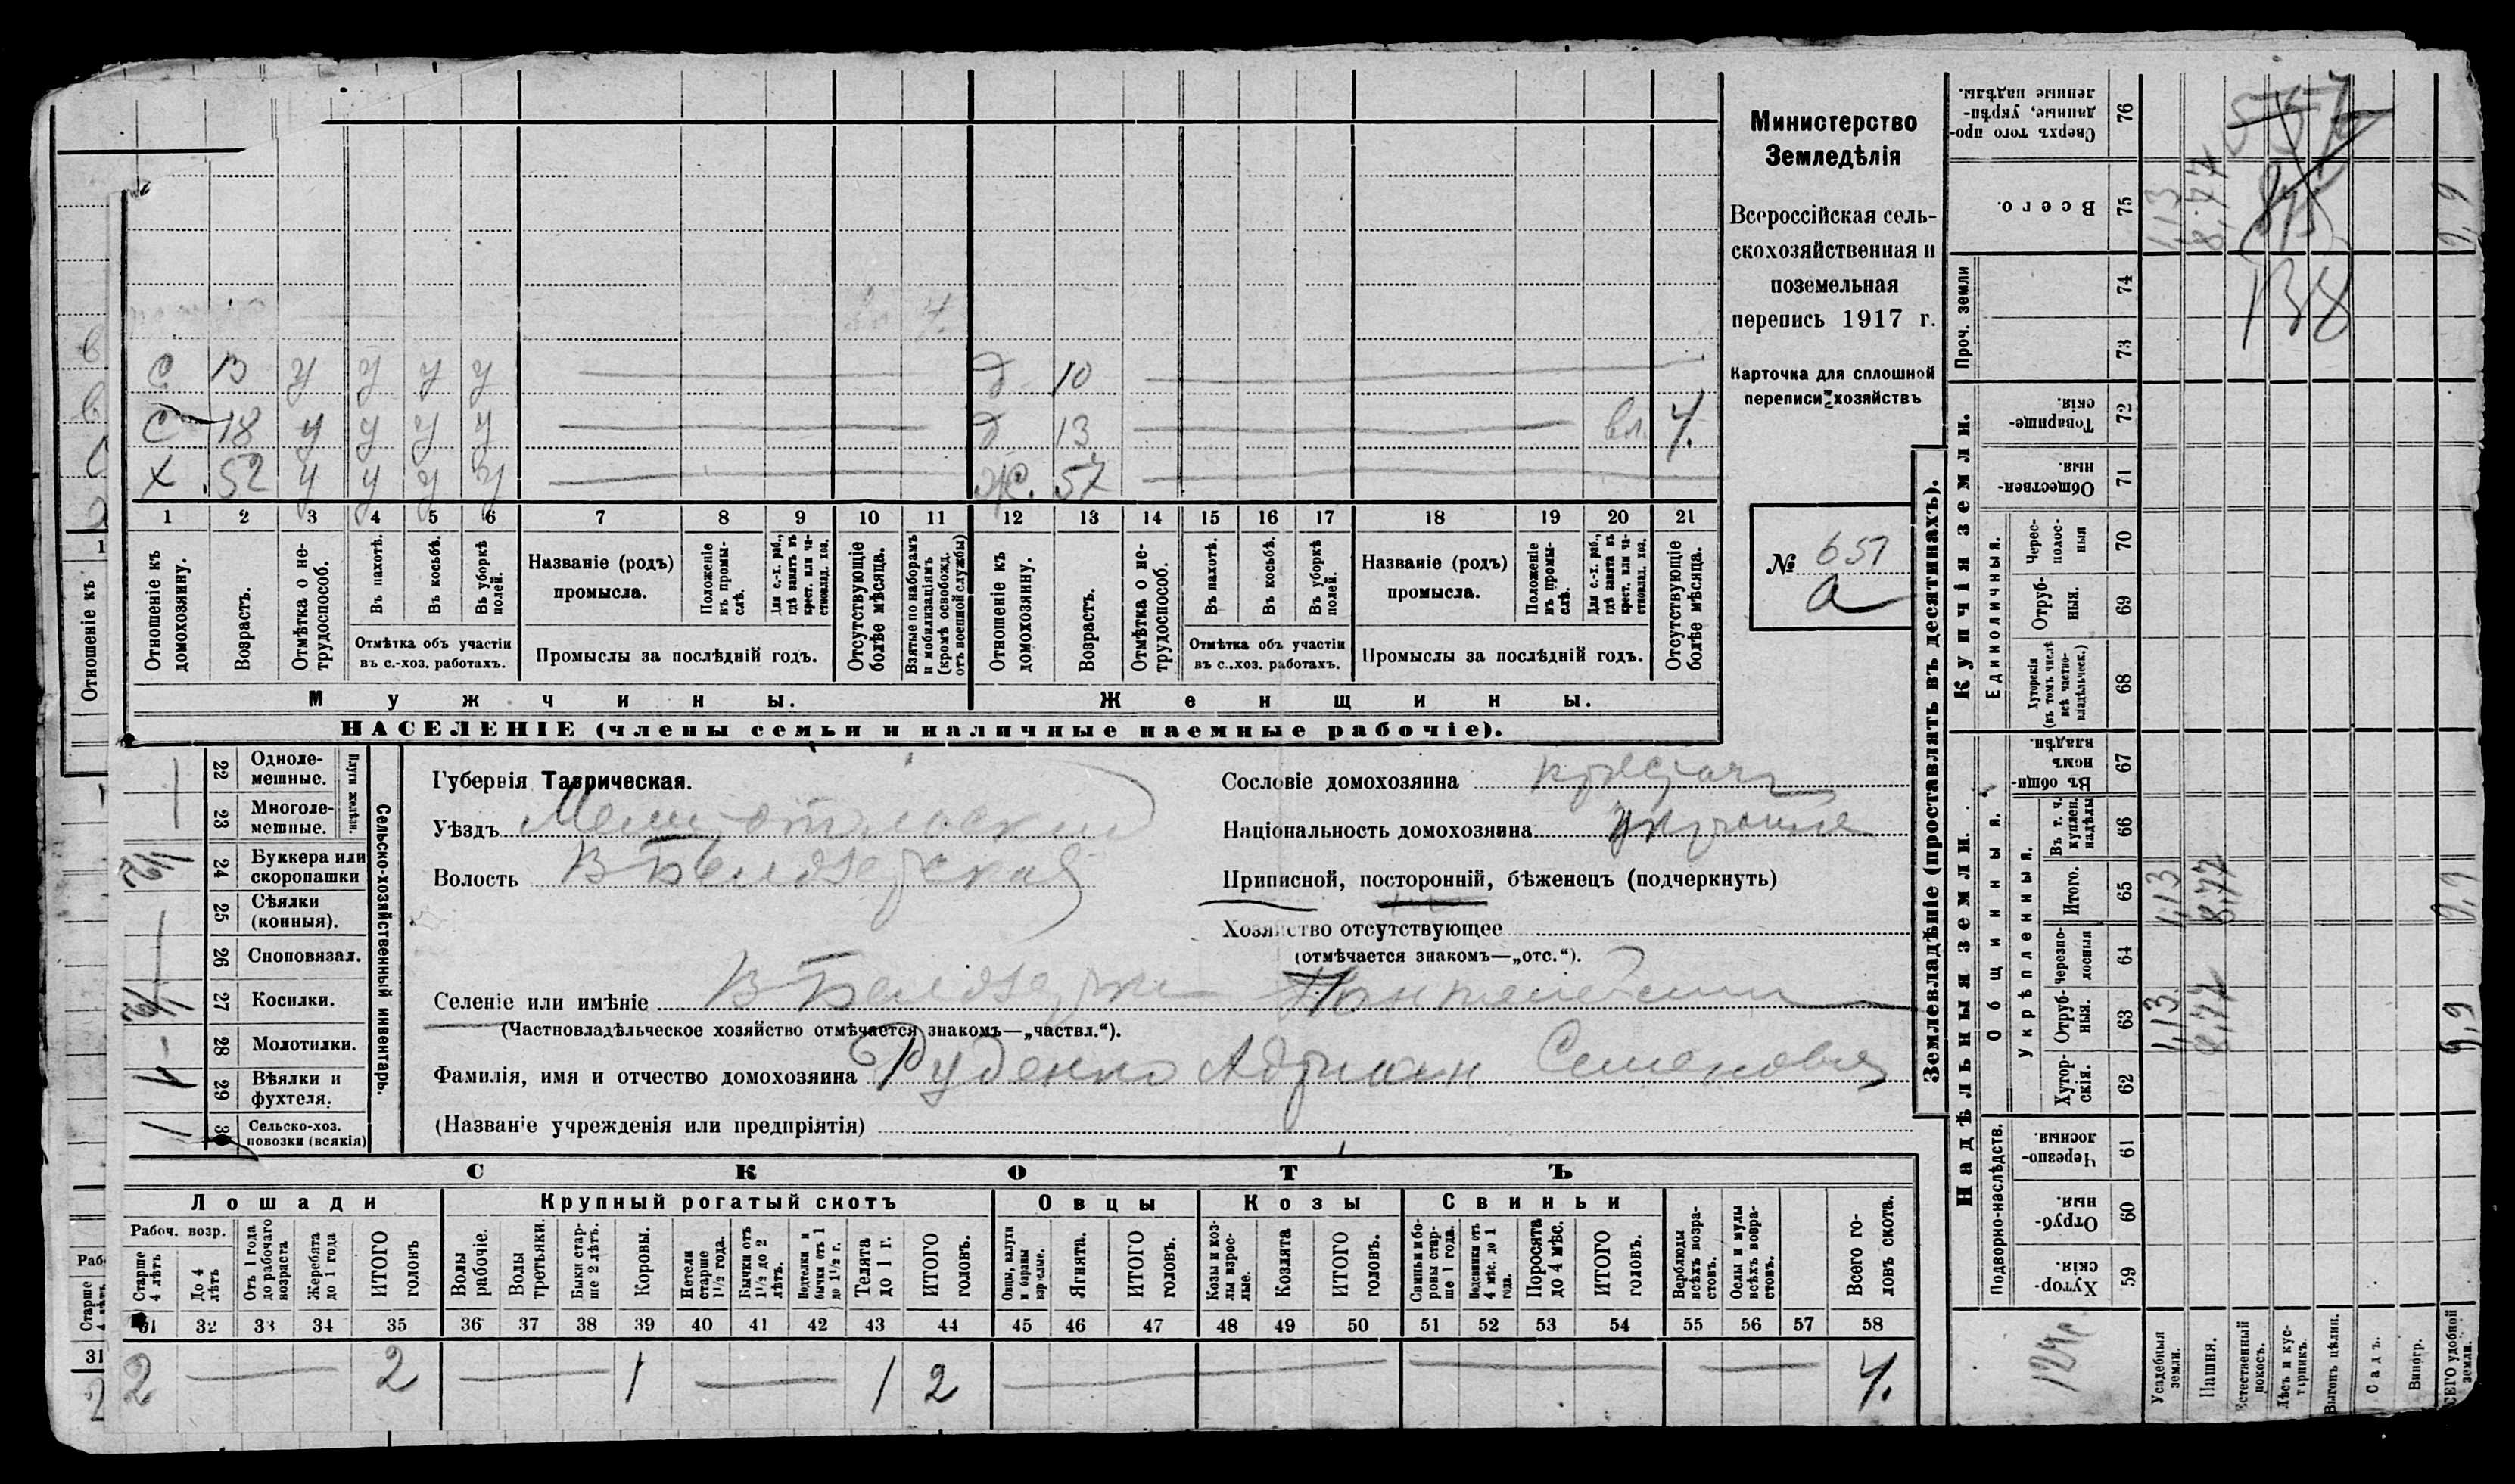 Министерство
Земледѣлія
Всероссійская сель-
скохозяйственная и
поземельная
перепись 1917 г.
Карточка для сплошной
переписи хозяйствъ
№ 651
а
С 13 у у у у д 10
С 18 у у у у д 13 вл. 4.
Х 52 у у у у Ж. 57
1 2 3 4 5 6 7 8 9 10 11 12 13 14 15 16 17 18 19 20 21
Отношеніе къ домохозяину.
Возрастъ.
Отмѣтка о не-трудоспособ.
Въ пахотѣ.
Въ косьбѣ.
Въ уборкѣ полей.
Отмѣтка объ участіи
въ с.-хоз. работахъ.
Названіе (родъ)
промысла.
Положеніе въ промы-слѣ.
Для с.-х. раб., гдѣ занятъ въ крест. или ча-стновлад. хоз.
Промыслы за послѣдній годъ.
Отсутствующіе болѣе мѣсяца.
Взятые по наборамъ и мобилизаціямъ (кромѣ освобожд. отъ военной службы)
Отношеніе къ домохозяину.
Возрастъ.
Отмѣтка о не-трудоспособ.
Въ пахотѣ.
Въ косьбѣ.
Въ уборкѣ полей.
Отмѣтка объ участіи
въ с..хоз. работахъ.
Названіе (родъ)
промысла.
Положеніе въ промы-слѣ.
Для с.-х. раб., гдѣ занята въ крест. или ча-стновлад. хоз.
Промыслы за послѣдній годъ.
Отсутствующіе болѣе мѣсяца.
Мужчины. Женщины.
НАСЕЛЕНІЕ (члены семьи и наличные наемные рабочіе).
Сельско-хозяйственный инвентарь.
Плуги желѣзн.
22 Одноле-мешные.
23 Многоле-мешные.
24 Буккера или скоропашки
25 Сѣялки (конныя).
26 Сноповязал.
27 Косилки.
28 Молотилки.
29 Вѣялки и фухтеля. 1
30 Сельско-хоз. повозки (всякія) 1
Губернія Таврическая.
Уѣздъ Мелитопольский
Волость В Белозерская
Селеніе или имѣніе В Белозерка
(Частновладѣльческое хозяйство отмѣчается знакомъ—„частвл.“).
Фамилія, имя и отчество домохозяина Руденко Адриан Семенович
(Названіе учрежденія или предпріятія)
Сословіе домохозяина
Національность домохозяина
Приписной, посторонній, бѣженецъ (подчеркнуть)
Хозяйство отсутствующее
(отмѣчается знакомъ—„отс.“).
СКОТЪ
Лошади Крупный рогатый скотъ Овцы Козы Свиньи
Рабоч. возр.
Старше 4 лѣтъ
До 4 лѣтъ
Отъ 1 года до рабочаго возраста
Жеребята до 1 года
ИТОГО головъ
Волы рабочіе.
Волы третьяки.
Быки стар-ше 2 лѣтъ.
Коровы.
Нетели старше 1½ года.
Бычки отъ 1½ до 2 лѣтъ.
Подтелки и бычки отъ 1 до 1½ г.
Телята до 1 г.
ИТОГО головъ.
Овцы, валухи и бараны взрослые.
Ягнята.
ИТОГО головъ.
Козы и коз-лы взрос-лые.
Козлята
ИТОГО головъ.
Свиньи и бо-ровы стар-ше 1 года.
Подсвинки отъ 4 мѣс. до 1 года.
Поросята до 4 мѣс.
ИТОГО головъ.
Верблюды всѣхъ возра-стовъ.
Ослы и мулы всѣхъ возра-стовъ.
Всего го-ловъ скота.
31 32 33 34 35 36 37 38 39 40 41 42 43 44 45 46 47 48 49 50 51 52 53 54 55 56 57 58
2 2 1 1 2 4.
Землевладѣніе (проставлять въ десятинахъ).
Надѣльныя земли. Купчія земли. Проч. земли
Подворно-наслѣдств.
Общинныя.
Укрѣпленныя.
Единоличныя.
59 Хутор-скія.
60 Отруб-ныя.
61 Черезпо-лосныя.
62 Хутор-скія.
63 Отруб-ныя. 1,13 8,77 9,9
64 Черезпо-лосныя
65 Итого. 1,13 8,77 9,9
66 Въ т. ч. куплен. надѣлы
67 Въ общи-номъ владѣн.
68 Хуторскія (въ томъ числѣ всѣ частно-владѣльческ.)
69 Отруб-ныя.
70 Черес-полос-ныя
71 Обществен-ныя.
72 Товарище-скія.
73
74
75 Всего. 1,13 8,77 9,9
76 Сверхъ того про-данные, укрѣп-ленные надѣлы.
Усадебныя земли.
Пашня.
Естественный покосъ.
Лѣсъ и кус-тарникъ.
Выгонъ цѣлин.
Садъ.
Виногр.
ВСЕГО удобной земли.
Отношеніе къ